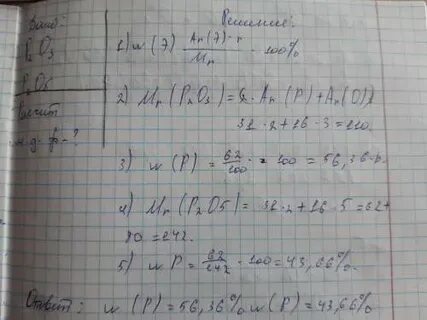 Решение:
P₂O₃
P₂O5
1) w (Э) = Ar(Э)·n / Mr · 100%
2) Mr (P₂O₃) = 2·Ar (P) + Ar(O)3
31·2+16·3=110.
3) w (P) = 62/100 · = 100 = 56,36
4) Mr (P₂O5) = 31·2+16·5=62+
80=242.
5) w P = 62/242 · 100=43,66%.
Ответ: w (P) = 56,36% w(P) = 43,66%